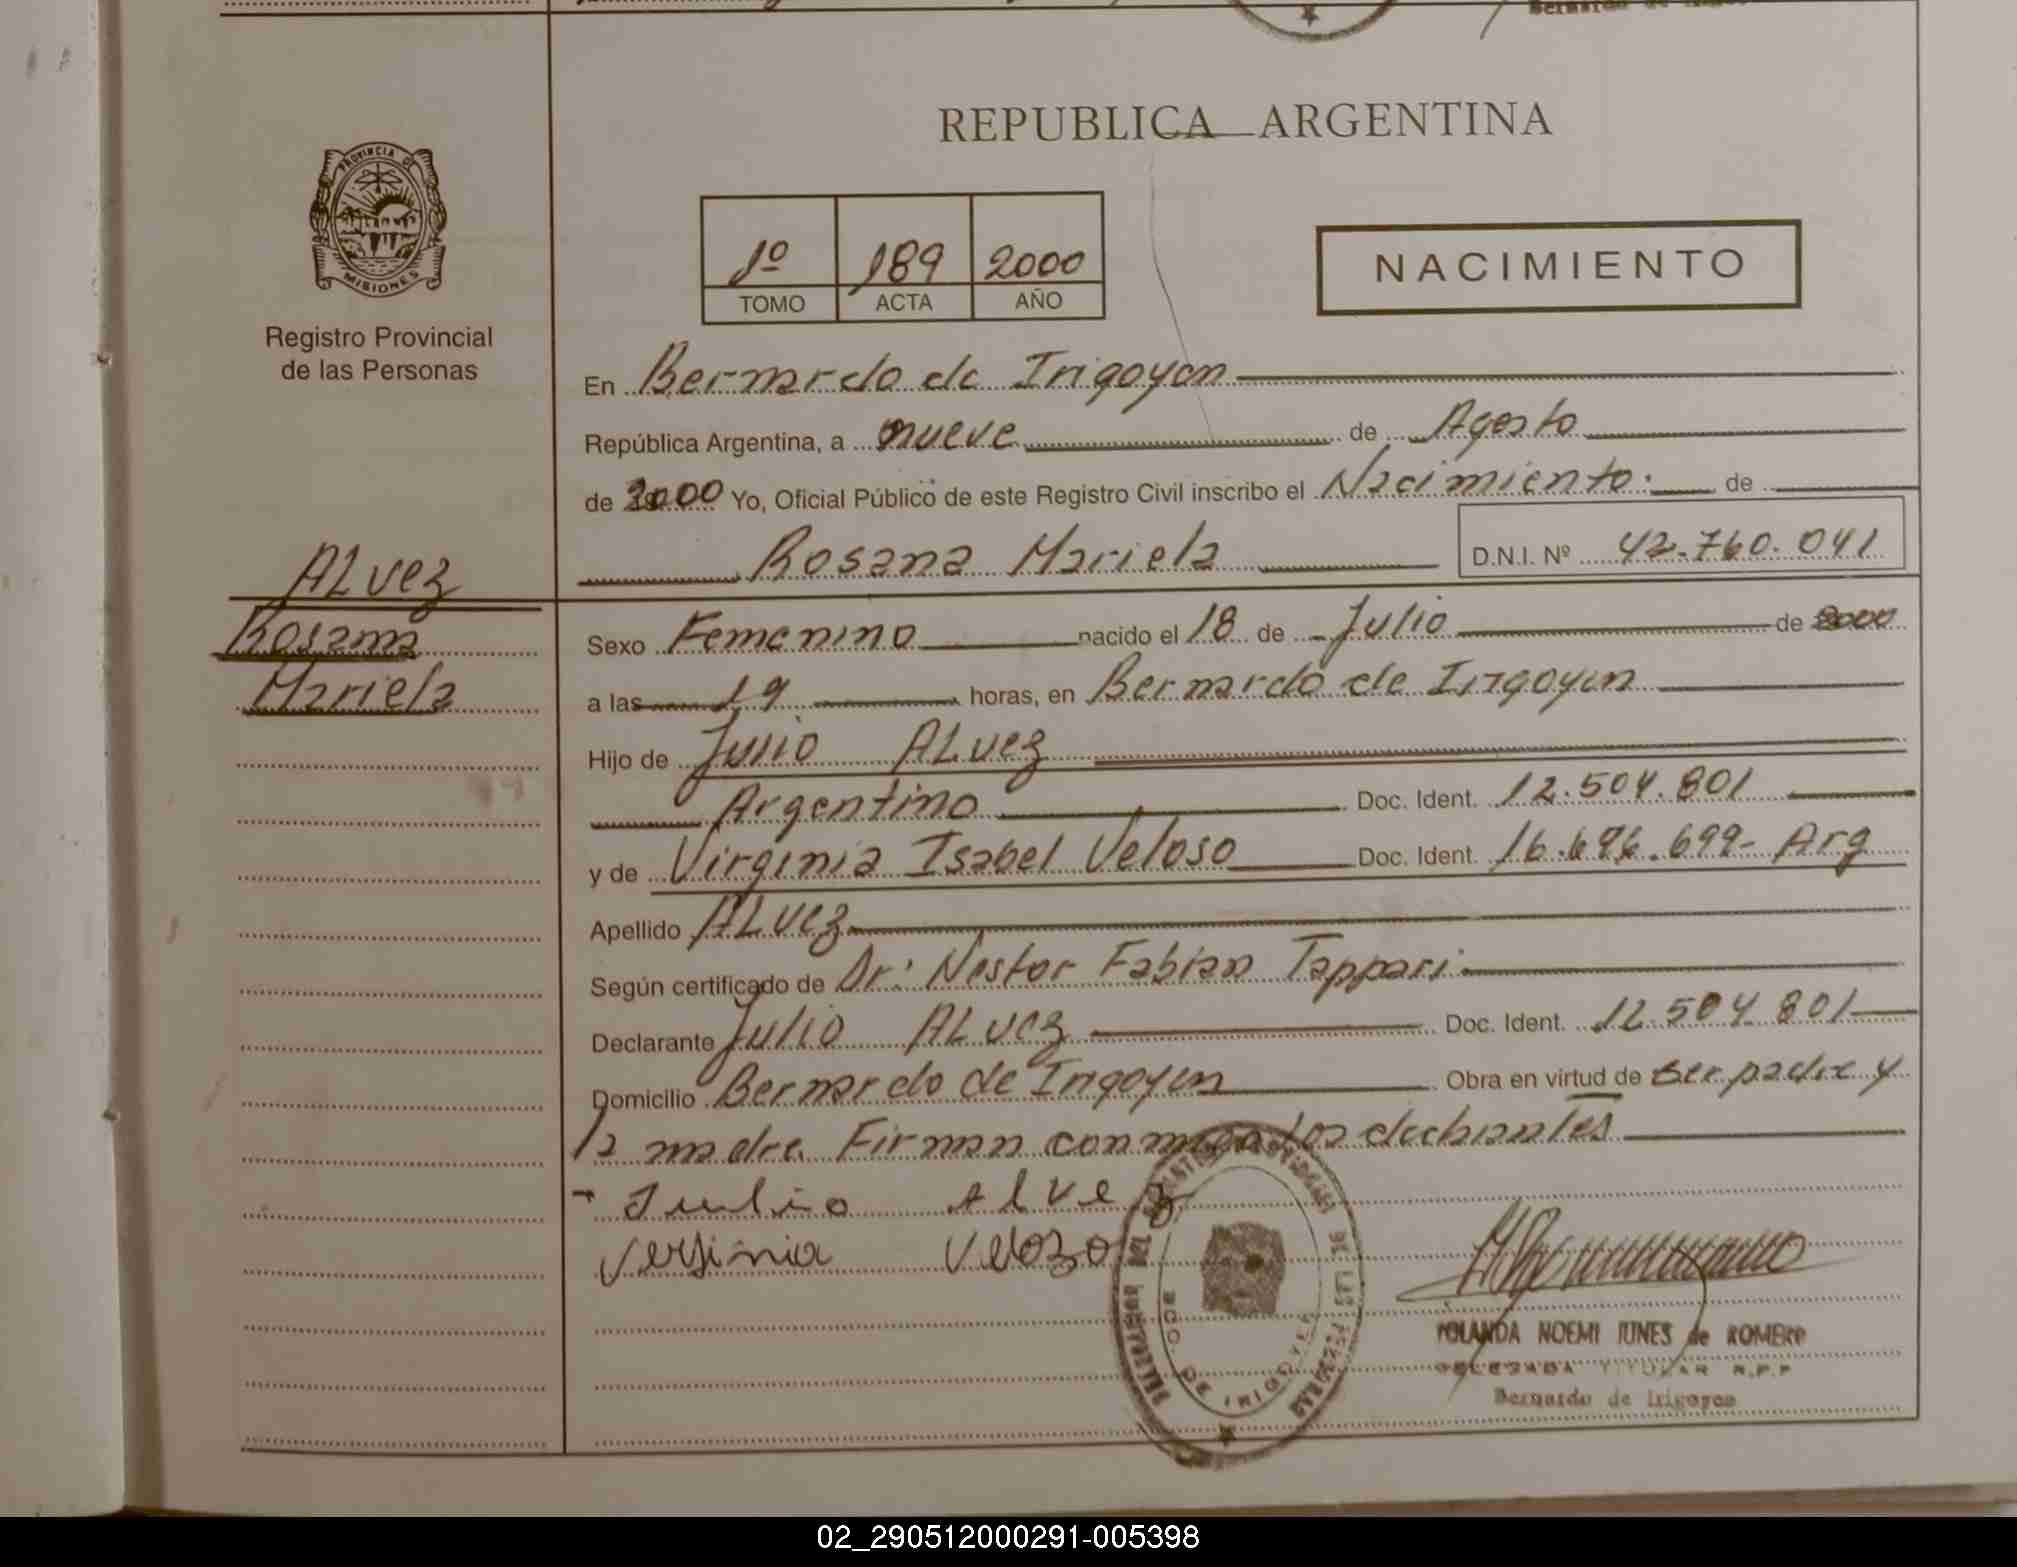 REPUBLICA ARGENTINA
PROVINCIA DE
MISIONES
Registro Provincial
de las Personas
1º 189 2000
TOMO ACTA AÑO
NACIMIENTO
En Bernardo de Irigoyen
República Argentina, a nueve de Agosto
de 2000 Yo, Oficial Público de este Registro Civil inscribo el Nacimiento. de
Rosana Mariela D.N.I. Nº 42.760.041
ALvez
Rosana
Mariela
Sexo Femenino nacido el 18 de Julio de 2000
a las 19 horas, en Bernardo de Irigoyen
Hijo de Julio ALvez
Argentino Doc. Ident. 12.504.801
y de Virginia Isabel Veloso Doc. Ident. 16.696.699- Arg
Apellido ALvez
Según certificado de Dr: Nestor Fabian Tappari
Declarante Julio ALvez Doc. Ident. 12.504.801
Domicilio Bernardo de Irigoyen Obra en virtud de ser padre y
la madre. Firman conmigo los
Julio Alvez
Versinia Velozo
BDO. DE IRIGOYEN
YOLANDA NOEMI IUNES de ROMERO
DELEGADA TITULAR R.P.P
Bernardo de Irigoyen
02_290512000291-005398